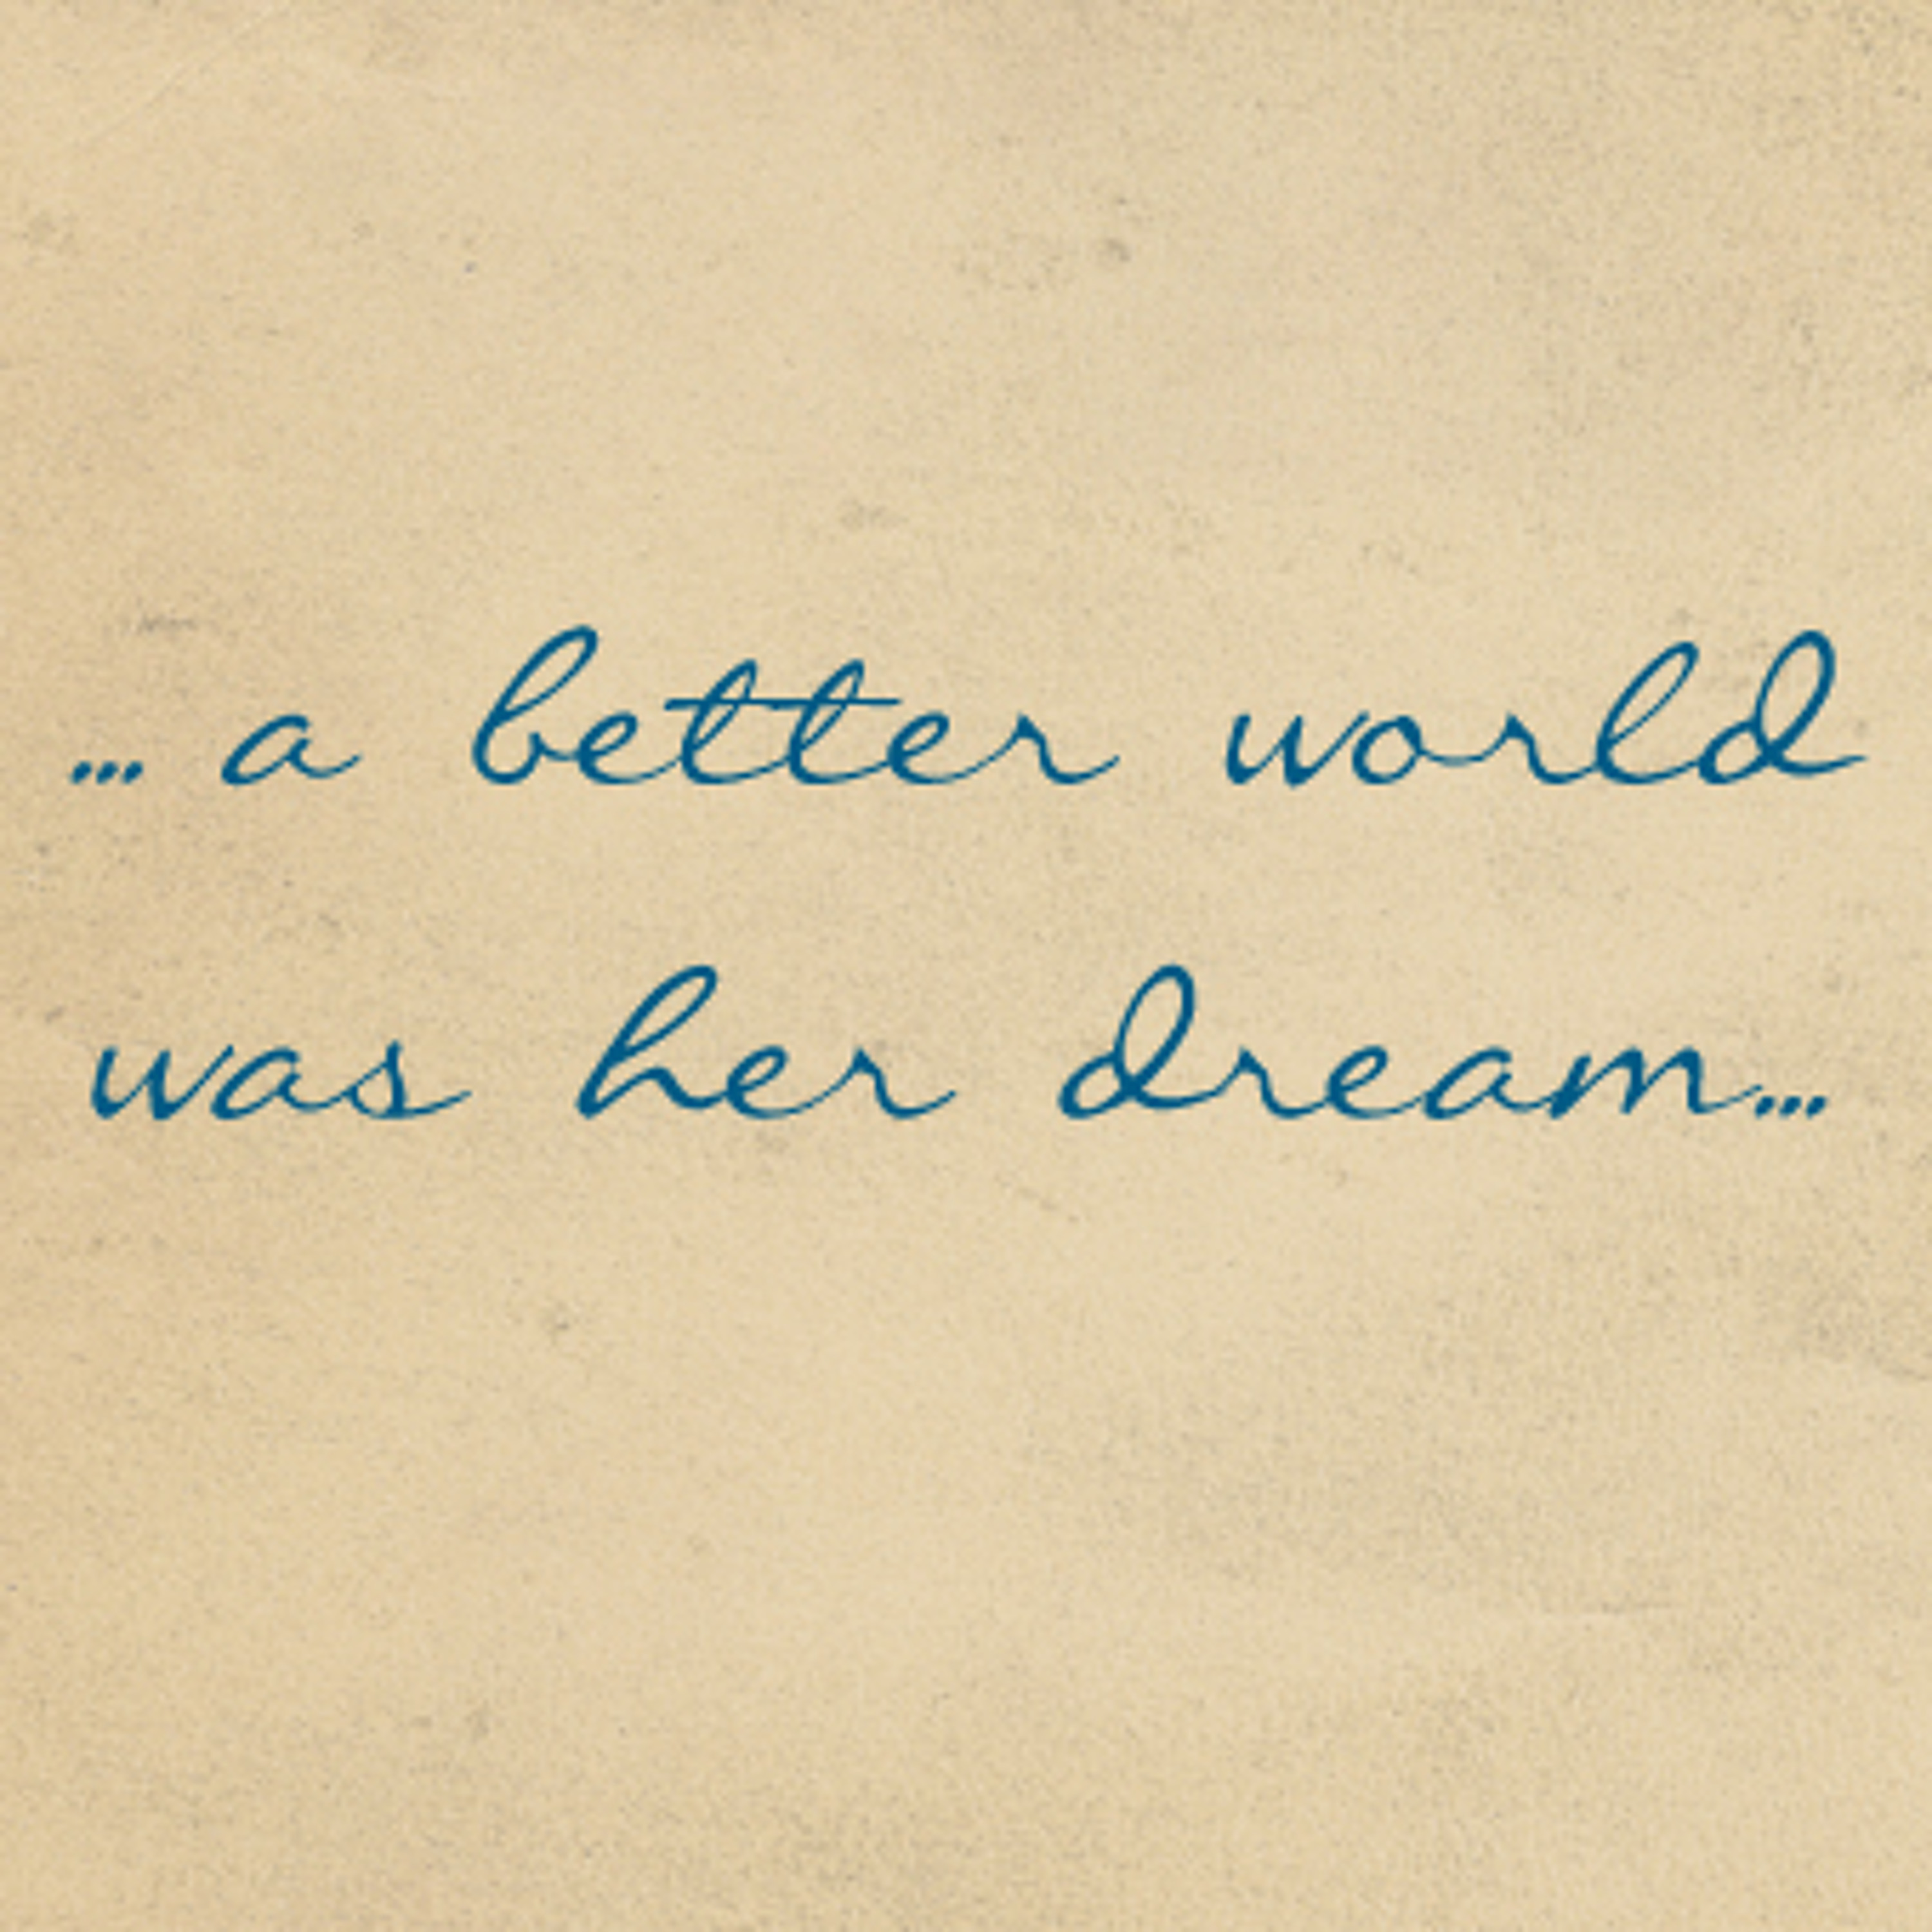 ... a better world
was her dream...